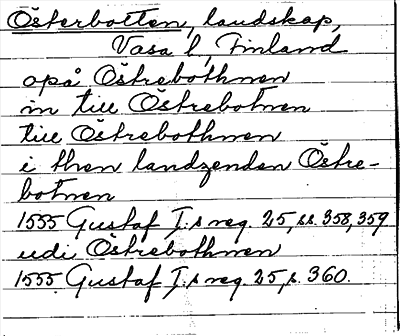 Österbotten, landskap,
Vasa l, Finland
opå Östrebothnen
in till Östrebotnen
till Östrebothnen
i then landzenden Östre-
botnen
1555 Gustaf I:s reg. 25, s. 358, 359
udi Östrebothnen
1555 Gustaf I:s reg. 25, s. 360.